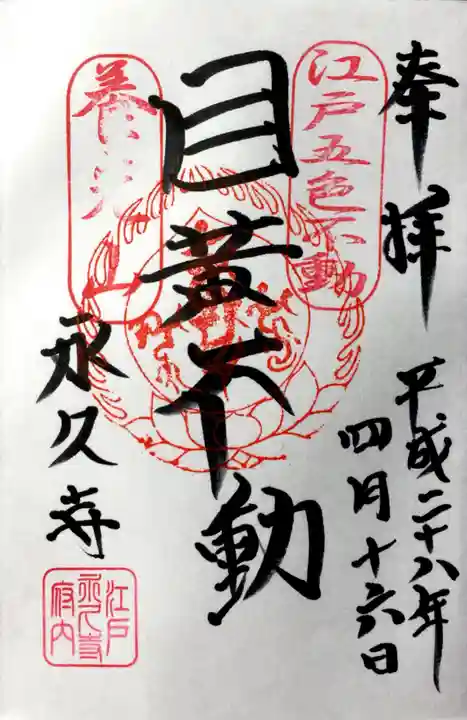 奉拝
平成二十八年
四月十六日
江戸五色不動
目黄不動
養光山
永久寺
江戸
永久寺
府内